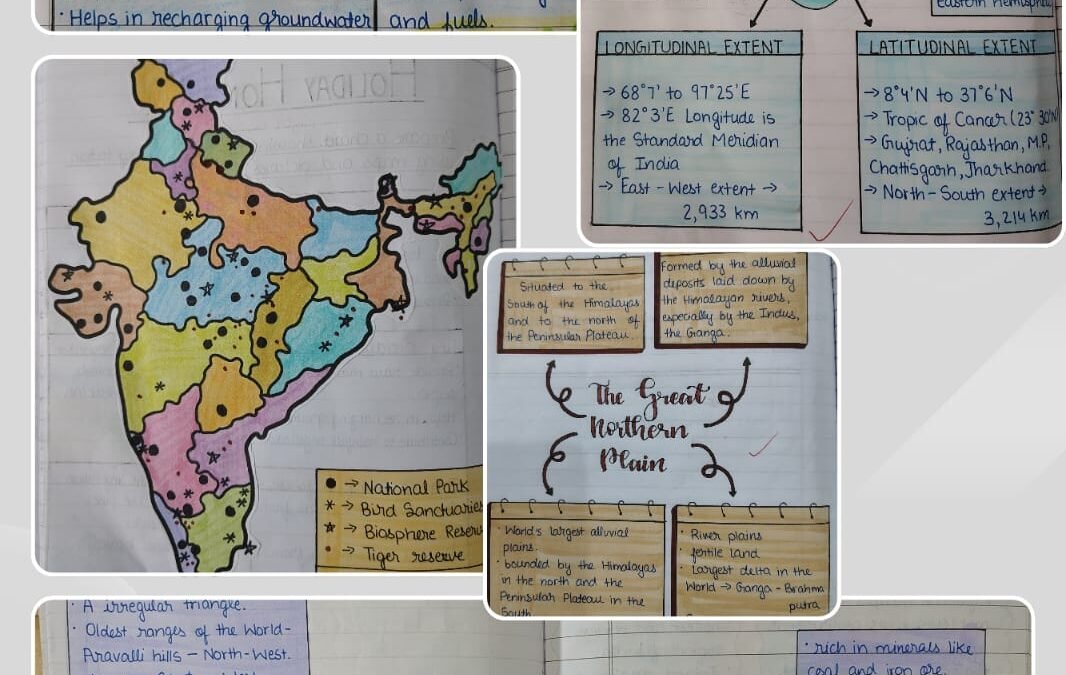 · Helps in recharging groundwater and fuels.
eastern Hemisphere
LONGITUDINAL EXTENT
→ 68°7' to 97°25'E
→ 82°3'E Longitude is
the Standard Meridian
of India
→ East - West extent →
2,933 km
LATITUDINAL EXTENT
→ 8°4'N to 37°6'N
→ Tropic of Cancer (23° 30'N
→ Gujrat, Rajasthan, M.P,
Chattisgarh, Jharkhand
→ North - South extent →
3,214 km
HOLIDAY
● → National Park
* → Bird Sanctuaries
☆ → Biosphere Reserv
• → Tiger reserve
Situated to the
South of the Himalayas
and to the north of
the Peninsular Plateau.
Formed by the alluvial
deposits laid down by
the Himalayan rivers,
especially by the Indus,
the Ganga.
The Great
Northern
Plain
· World's largest alluvial
plains.
· bounded by the Himalayas
in the north and the
Peninsular Plateau in the
South
· River plains
· fertile land
· Largest delta in the
World → Ganga - Brahma
putra
· A irregular triangle.
· Oldest ranges of the World -
Aravalli hills - North-West.
· rich in minerals like
coal and iron ore.